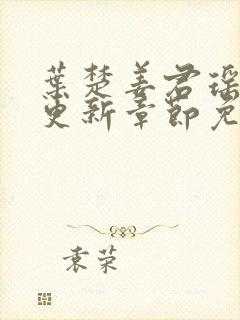 葉楚姜君瑶
更新章節免
袁荣